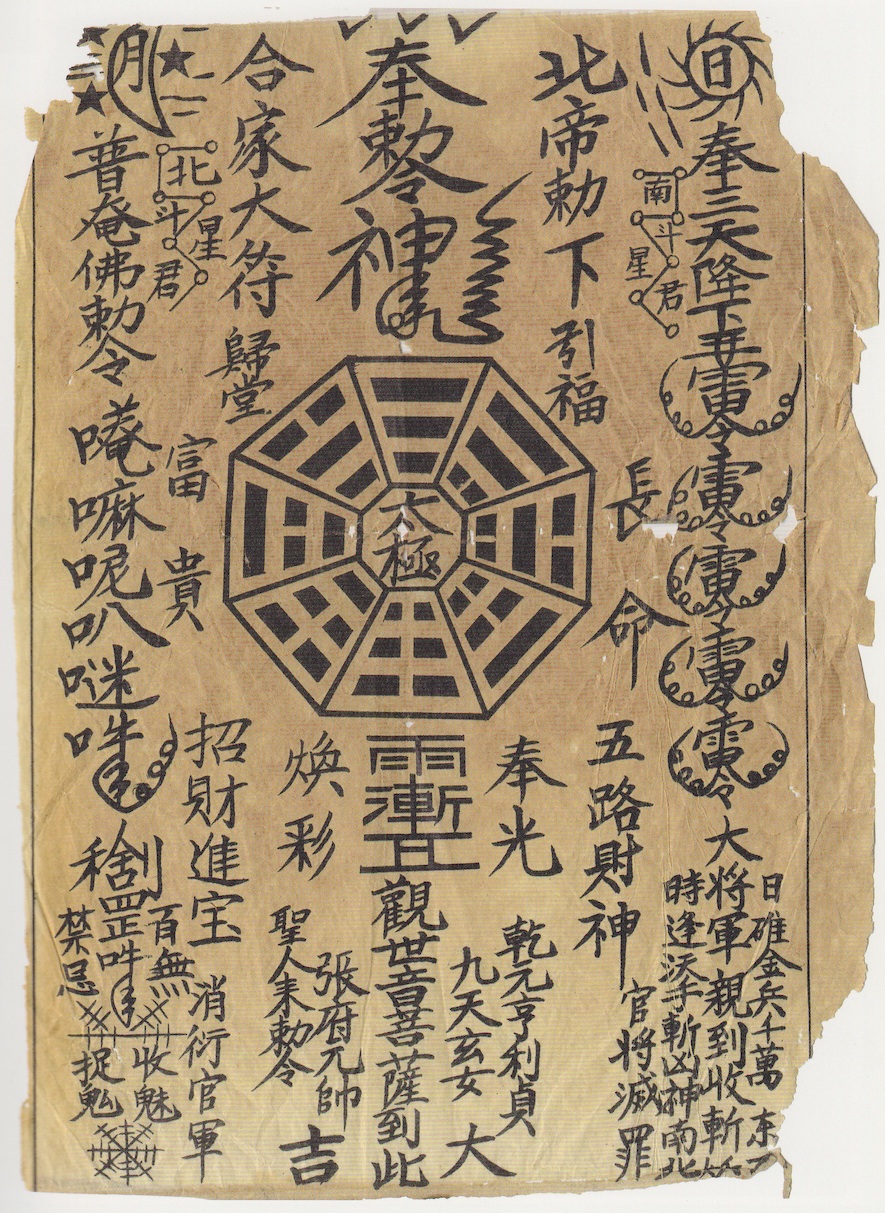 日
奉三天降下五雷令雷令雷令雷令雷令大將軍親到收斬
日碓金兵千萬
時逢沃手斬凶神南北
南斗星君
北帝勅下引福
長命
五路財神
官將滅罪
奉勅令神
太極
奉光
乾元亨利貞
九天玄女
大
雨漸
觀世音菩薩到此
煥彩
張府元帥
聖人来勅令
吉
合家大符歸堂
富貴
招財進宝
消衍官軍
月
北斗星君
普庵佛勅令
唵嘛呢叭𠺗吽
罡吽
百無
禁忌
收魅
捉鬼